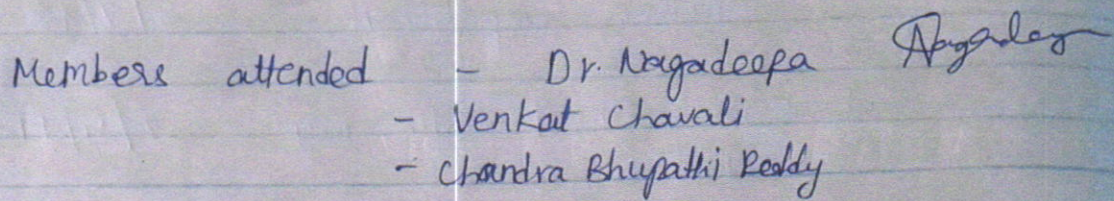 Members attended - Dr. Nagadeepa
- Venkat Chavali
- Chandra Bhupathi Reddy